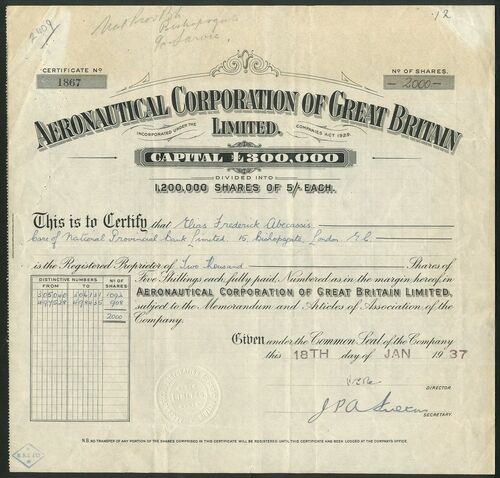 2409
Bishopsgate
12
CERTIFICATE Nº
1867
Nº OF SHARES.
—2000—
AERONAUTICAL CORPORATION OF GREAT BRITAIN
INCORPORATED UNDER THE
COMPANIES ACT 1929.
LIMITED.
CAPITAL £300,000
DIVIDED INTO
1,200,000 SHARES OF 5/- EACH.
This is to Certify that Elias Frederick Abecassis
care of National Provincial Bank Limited. 15, Bishopsgate, London E.C.
is the Registered Proprietor of Two thousand Shares of
Five Shillings each, fully paid, Numbered as in the margin hereof, in
AERONAUTICAL CORPORATION OF GREAT BRITAIN LIMITED,
subject to the Memorandum and Articles of Association of the
Company.
DISTINCTIVE NUMBERS
FROM TO
Nº OF SHARES
1092
908
2000
Given under the Common Seal of the Company
this 18TH day of JAN 1937
DIRECTOR.
SECRETARY.
N.B. NO TRANSFER OF ANY PORTION OF THE SHARES COMPRISED IN THIS CERTIFICATE WILL BE REGISTERED UNTIL THIS CERTIFICATE HAS BEEN LODGED AT THE COMPANY'S OFFICE.